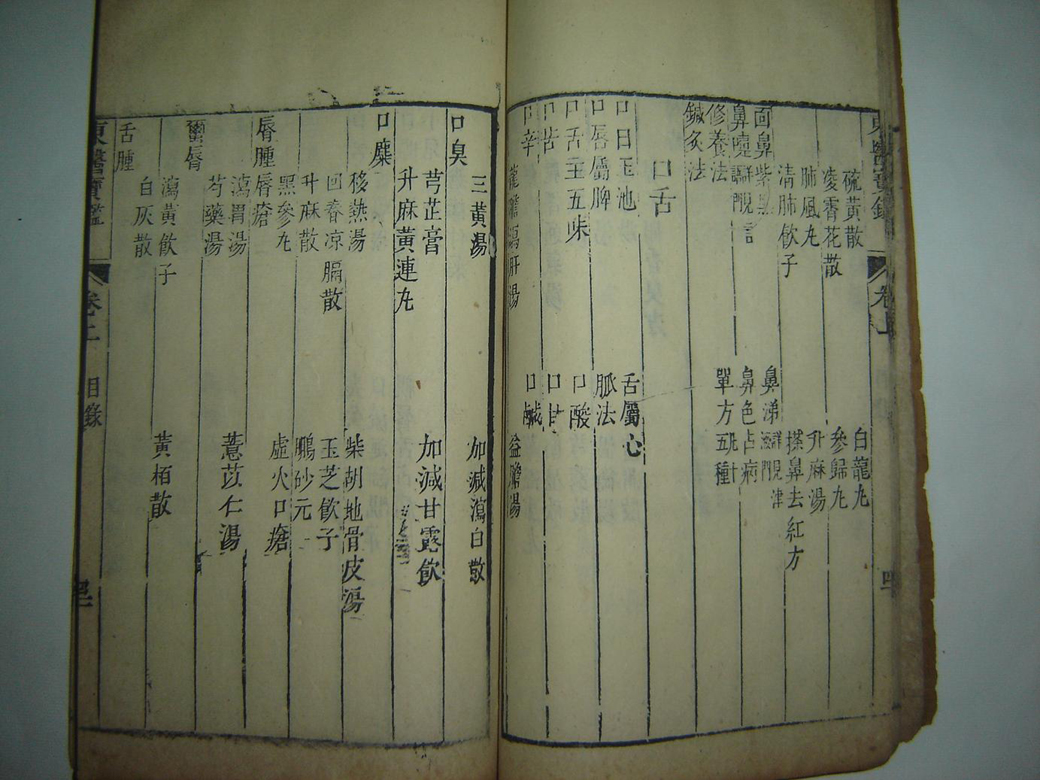 東醫寶鑑
卷上
四
硫黃散
白龍丸
凌霄花散
參歸丸
肺風丸
升麻湯
清肺飲子
搽鼻去紅方
面鼻紫黑
鼻涕
鼻塞
鼻色占病
修養法
單方
五種
鍼灸法
口舌
口曰玉池
舌屬心
口唇屬脾
脈法
口舌主五味
口酸
口苦
口甘
口辛
口鹹
益膽湯
瀉肝湯
口臭
三黃湯
加減瀉白散
芎芷膏
加減甘露飲
升麻黃連丸
口糜
移熱湯
柴胡地骨皮湯
回春凉膈散
玉芝飲子
升麻散
鵬砂元
黑參丸
虛火口瘡
唇腫唇瘡
瀉胃湯
薏苡仁湯
芍藥湯
繭唇
瀉黃飲子
黃栢散
白灰散
舌腫
東醫寶鑑
卷上
目錄
四